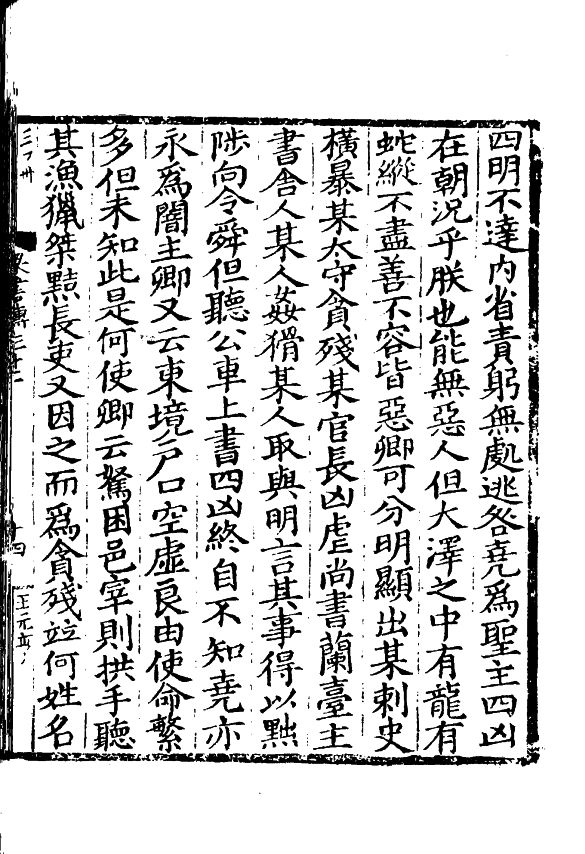 四明不達內省責躬無處逃咎堯爲聖主四凶
在朝況乎朕也能無惡人但大澤之中有龍有
蛇縱不盡善不容皆惡卿可分明顯出某刺史
橫暴某太守貪殘某官長凶虐尚書蘭臺主
書舍人某人姦猾某人取與明言其事得以黜
陟向令舜但聽公車上書四凶終自不知堯亦
永爲闇主卿又云東境戶口空虛良由使命繁
多但未知此是何使卿云駑困邑宰則拱手聽
其漁獵桀黠長吏又因之而爲貪殘竝何姓名
十四